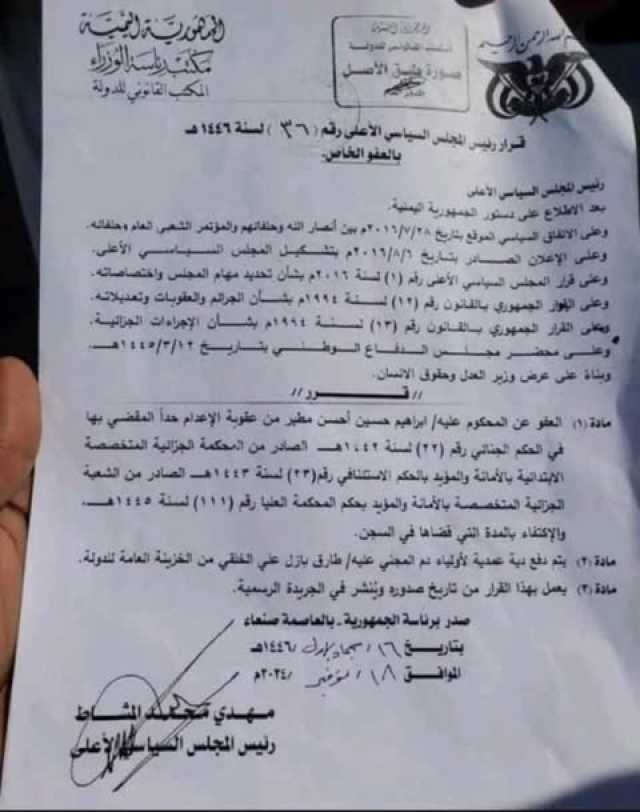 بسم الله الرحمن الرحيم
الجمهورية اليمنية
مكتب رئاسة الوزراء
المكتب القانوني للدولة
صورة طبق الأصل
قرار رئيس المجلس السياسي الأعلى رقم (٣٦) لسنة ١٤٤٦هـ
بالعفو الخاص.
رئيس المجلس السياسي الأعلى
بعد الاطلاع على دستور الجمهورية اليمنية.
وعلى الاتفاق السياسي الموقع بتاريخ ٢٠١٦/٧/٢٨م بين أنصار الله وحلفائهم والمؤتمر الشعبي العام وحلفائه.
وعلى الإعلان الصادر بتاريخ ٢٠١٦/٨/٦م بتشكيل المجلس السياسي الأعلى.
وعلى قرار المجلس السياسي الأعلى رقم (١) لسنة ٢٠١٦م بشأن تحديد مهام المجلس واختصاصاته.
وعلى القرار الجمهوري بالقانون رقم (١٢) لسنة ١٩٩٤م بشأن الجرائم والعقوبات وتعديلاته.
وعلى القرار الجمهوري بالقانون رقم (١٣) لسنة ١٩٩٤م بشأن الإجراءات الجزائية.
وعلى محضر مجلس الدفاع الوطني بتاريخ ١٤٤٥/٣/١٢هـ.
وبناءً على عرض وزير العدل وحقوق الانسان.
// قرر //
مادة (١) العفو عن المحكوم عليه/ ابراهيم حسين أحسن مطير من عقوبة الإعدام حداً المقضي بها
في الحكم الجنائي رقم (٢٢) لسنة ١٤٤٢هـ الصادر من المحكمة الجزائية المتخصصة
الابتدائية بالأمانة والمؤيد بالحكم الاستئنافي رقم(٢٣) لسنة ١٤٤٣هـ الصادر من الشعبة
الجزائية المتخصصة بالأمانة والمؤيد بحكم المحكمة العليا رقم (١١١) لسنة ١٤٤٥هـ.
والإكتفاء بالمدة التي قضاها في السجن.
مادة (٢) يتم دفع دية عمدية لأولياء دم المجني عليه/ طارق بازل علي الخلقي من الخزينة العامة للدولة.
مادة (٣) يعمل بهذا القرار من تاريخ صدوره ويُنشر في الجريدة الرسمية.
صدر برئاسة الجمهورية ـ بالعاصمة صنعاء
بتاريخ ١٦/ جماد الأول/ ١٤٤٦هـ
الموافق ١٨/ نوفمبر /٢٠٢٤م
مهدي محمد المشاط
رئيس المجلس السياسي الأعلى